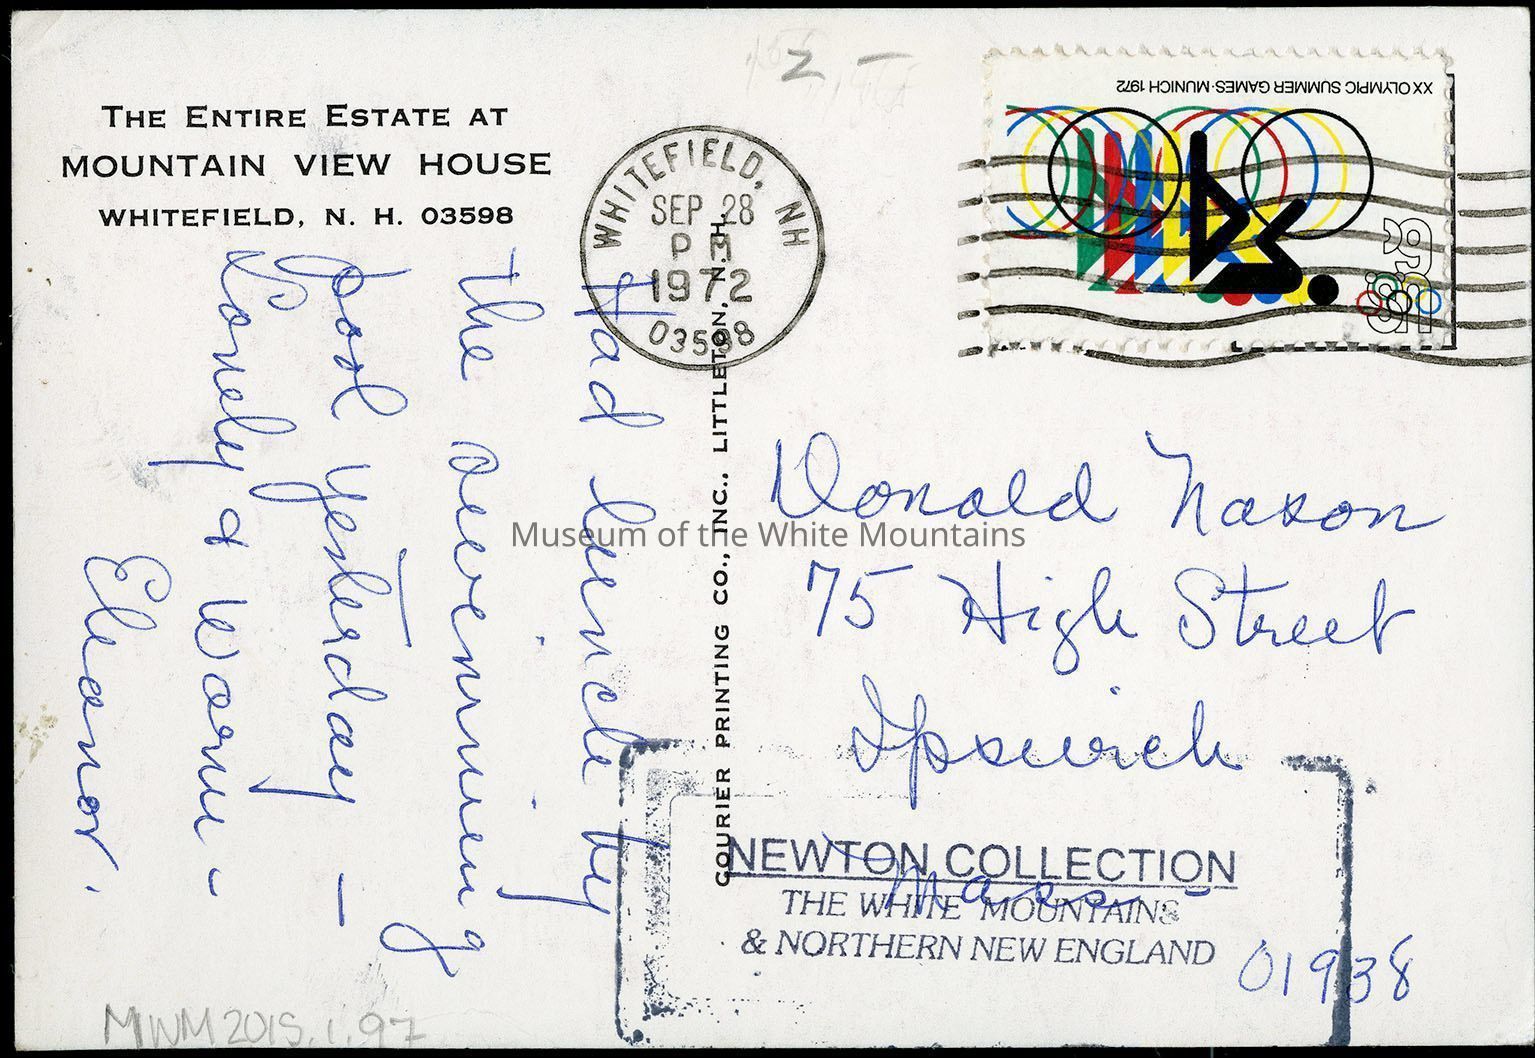 2 –
THE ENTIRE ESTATE AT
MOUNTAIN VIEW HOUSE
WHITEFIELD, N. H. 03598
WHITEFIELD, NH
SEP 28
PM
1972
03598
XX OLYMPIC SUMMER GAMES·MUNICH 1972
6c
US
Had lunch by
the swimming
Pool yesterday —
Lovely & warm –
Eleanor.
COURIER PRINTING CO., INC., LITTLETON, N. H.
Donald Nason
75 High Street
Ipswich
Mass
01938
NEWTON COLLECTION
THE WHITE MOUNTAINS
& NORTHERN NEW ENGLAND
Museum of the White Mountains
MWM2015.1.97